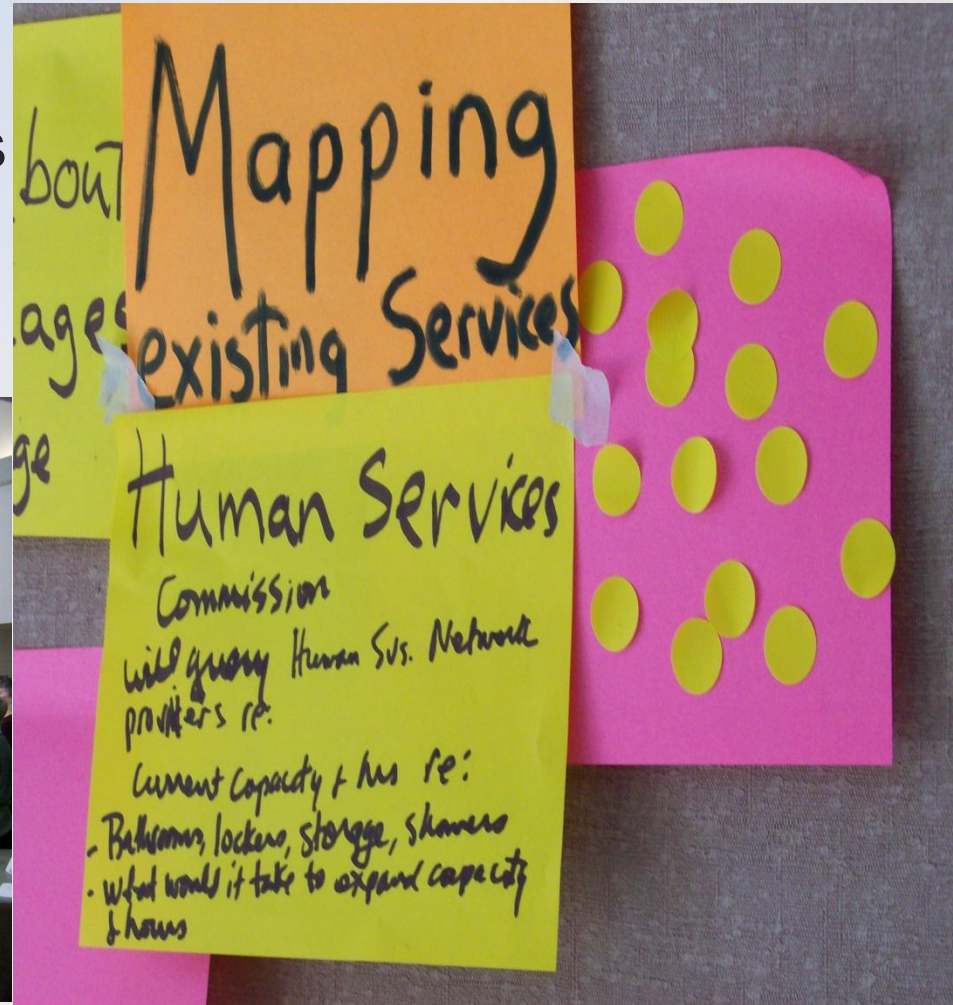 s
bout
ages
ge
Mapping
existing Services
Human Services
Commission
will query Human Svs. Network
providers re:
Current Capacity & hrs re:
- Bathrooms, lockers, storage, showers
- What would it take to expand capacity
& hours